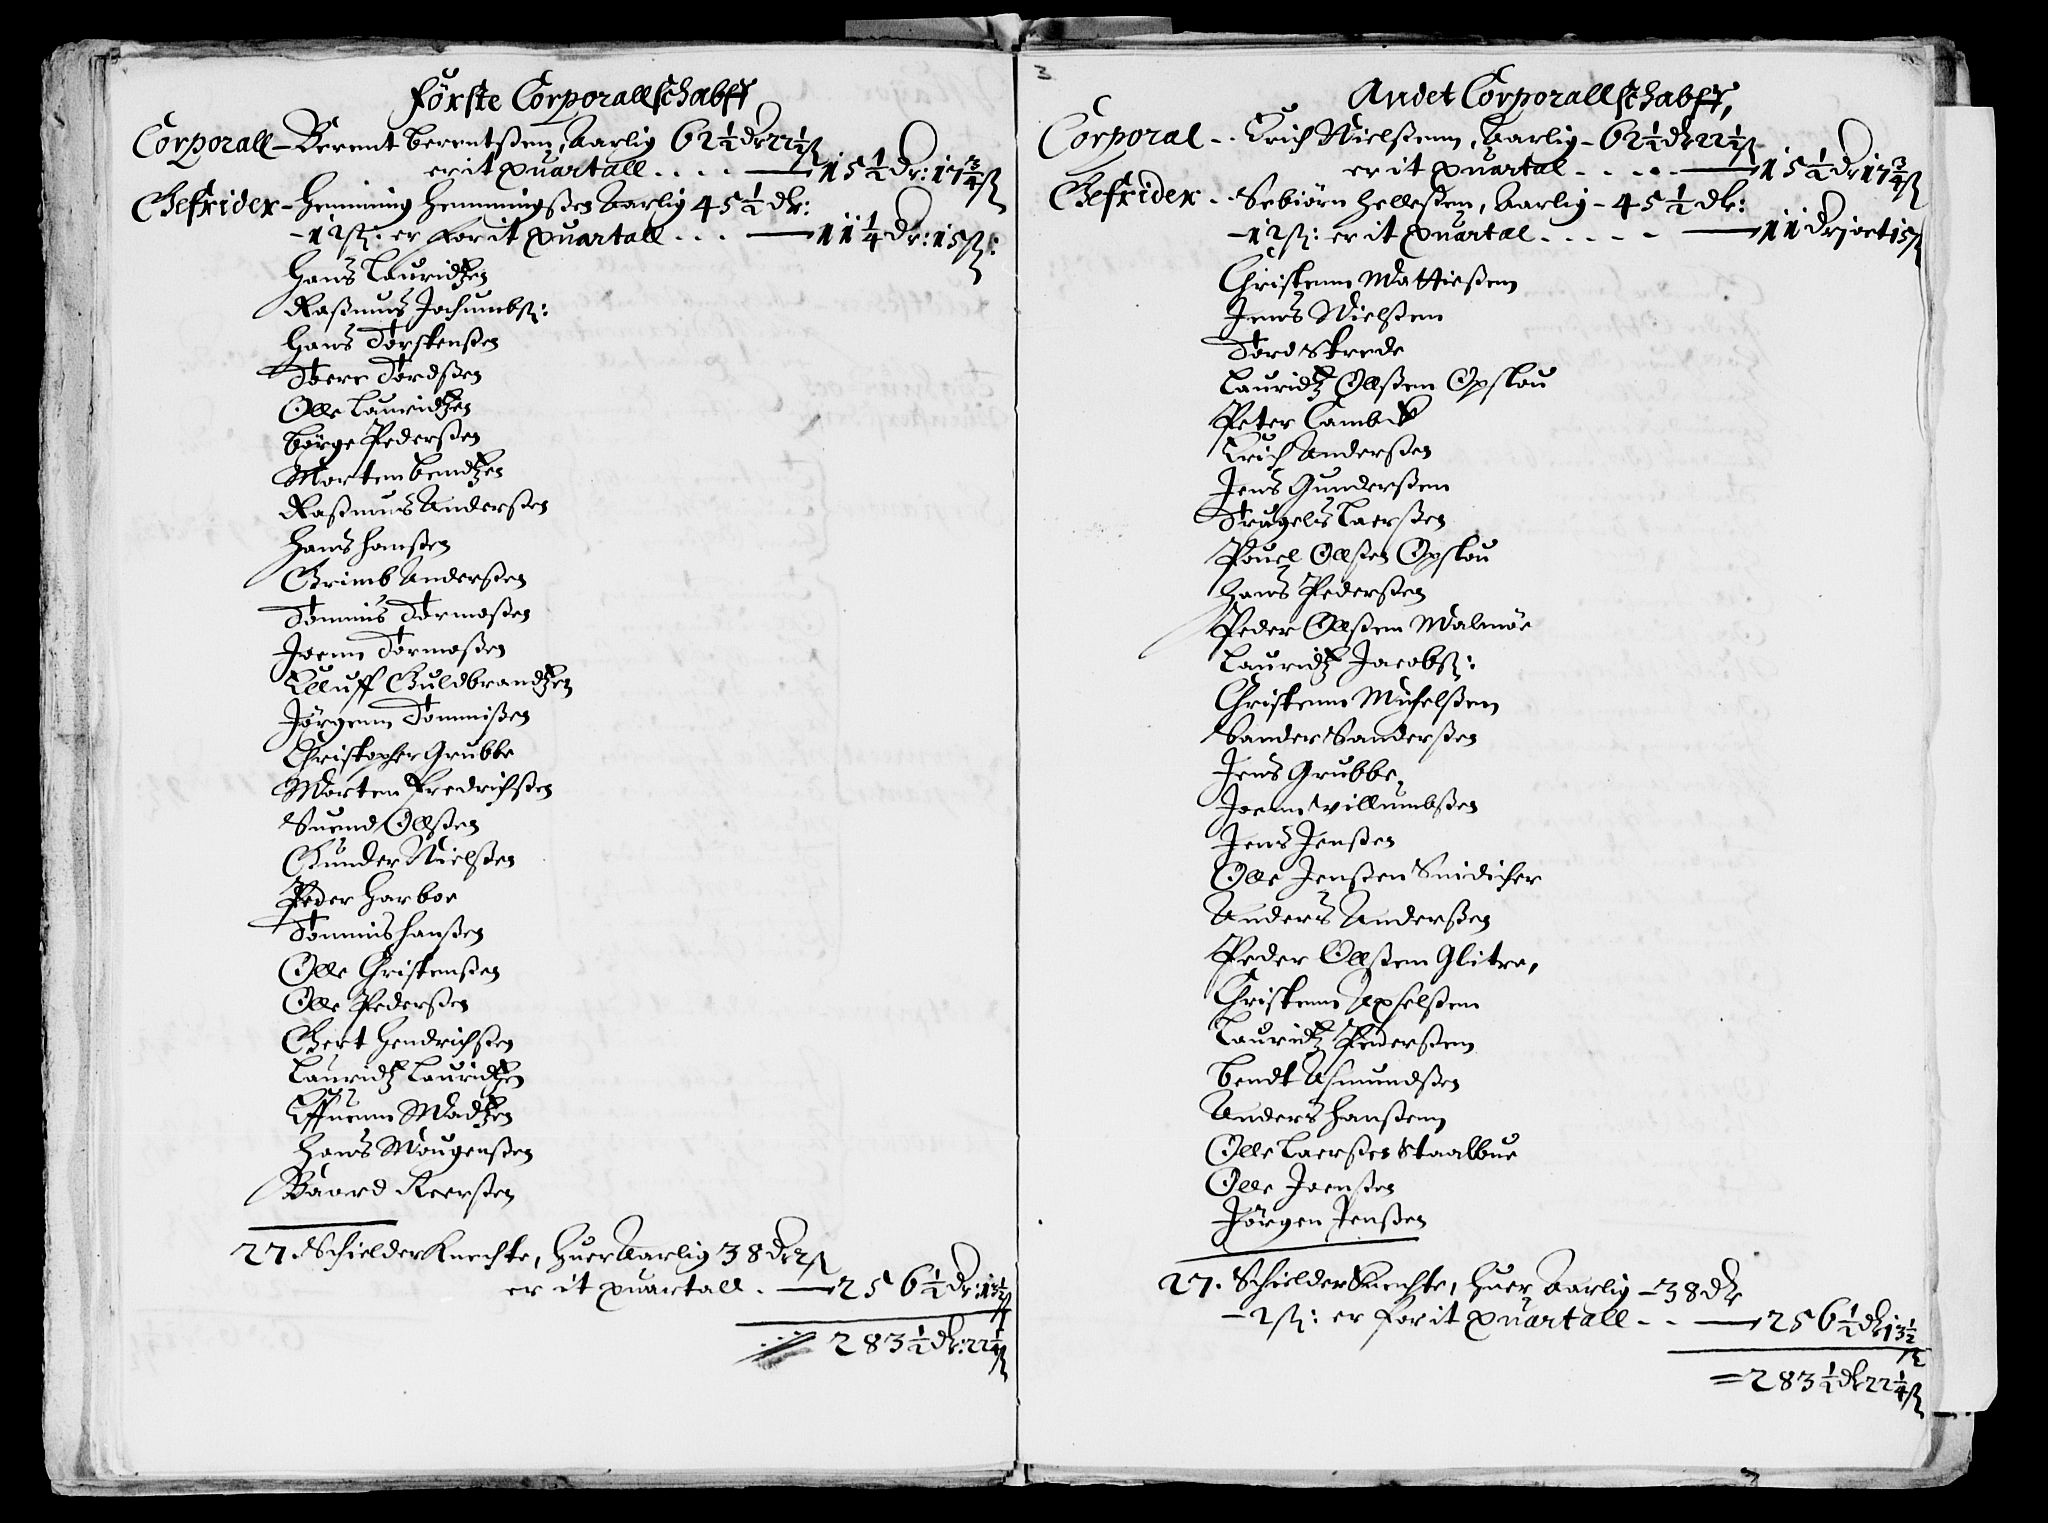 Förste Corporallschabfft
Corporall – Berent Berentßen, Aarlig 62½ dr 22½ ß
er it quartall . . . . — 15½ dr: 17¾ ß
Gefrider – Henning Hemmingßen Aarlig 45½ dr:
– 12 ß: er for it quartall . . . — 11¼ dr: 15 ß:
Hans Lauridtzen
Raßmus Jochumbß:
Hans Torstenßen
Toere Tordßen
Olle Lauridtzen
Börge Pederßen
Morten Bendtzen
Raßmus Anderßen
Hans Hanßen
Grimb Anderßen
Tommis Tormoßen
Joenn Tormoßen
Elluff Guldbrandtzen
Jörgenn Tommißen
Christopher Grubbe
Morten Fredrichßen
Suend Ollßen
Gunder Nielßen
Peder Harboe
Tommis Hanßen
Olle Christenßen
Olle Pederßen
Gert Hendrichßen
Lauridtz Lauridtzen
Effuenn Madtzen
Hans Mougenßen
Baard Keerßen
27. Schielder Knechte, Huer Aarlig 38 dr 2 ß
er it quartall . — 256½ dr: 13½ ß
283½ dr: 22¼ ß
3
Andet Corporallschabfft,
Corporal - - Erich Nielßenn, Aarlig – 62½ dr 22½ ß
er it quartal - - - - — 15½ dr 17¾ ß
Gefrider - - Sebiørn Helleßen, Aarlig – 45½ dr:
– 12 ß: er it quartal - - - - — 11 dr j ort 15 ß
Christenn Mattießenn
Jens Nielßenn
Tord Skrede
Lauridtz Ollßen Opslou
Peter Cambek
Erich Anderßen
Jens Gunderßenn
Trugels Laerßen
Pouel Ollßen Opslou
Hans Pederßen
Peder Ollßenn Malmöe
Lauridtz Jacobß:
Christenn Michelßenn
Sander Sanderßen
Jens Grubbe,
Joenn Villumbßen
Jens Jenßen
Olle Jenßen Snidicher
Anders Anderßen
Peder Ollßenn Glitre,
Christenn Axhelßenn
Lauridtz Pederßenn
Bendt Asmundßen
Anders Hanßenn
Olle Laerßen Staalbue
Olle Joenßen
Jörgen Jenßen
27. Schielder Knechte, Huer Aarlig – 38 dr
– 2 ß: er for it quartall - - — 256½ dr 13½ ß
= 283½ dr 22¼ ß